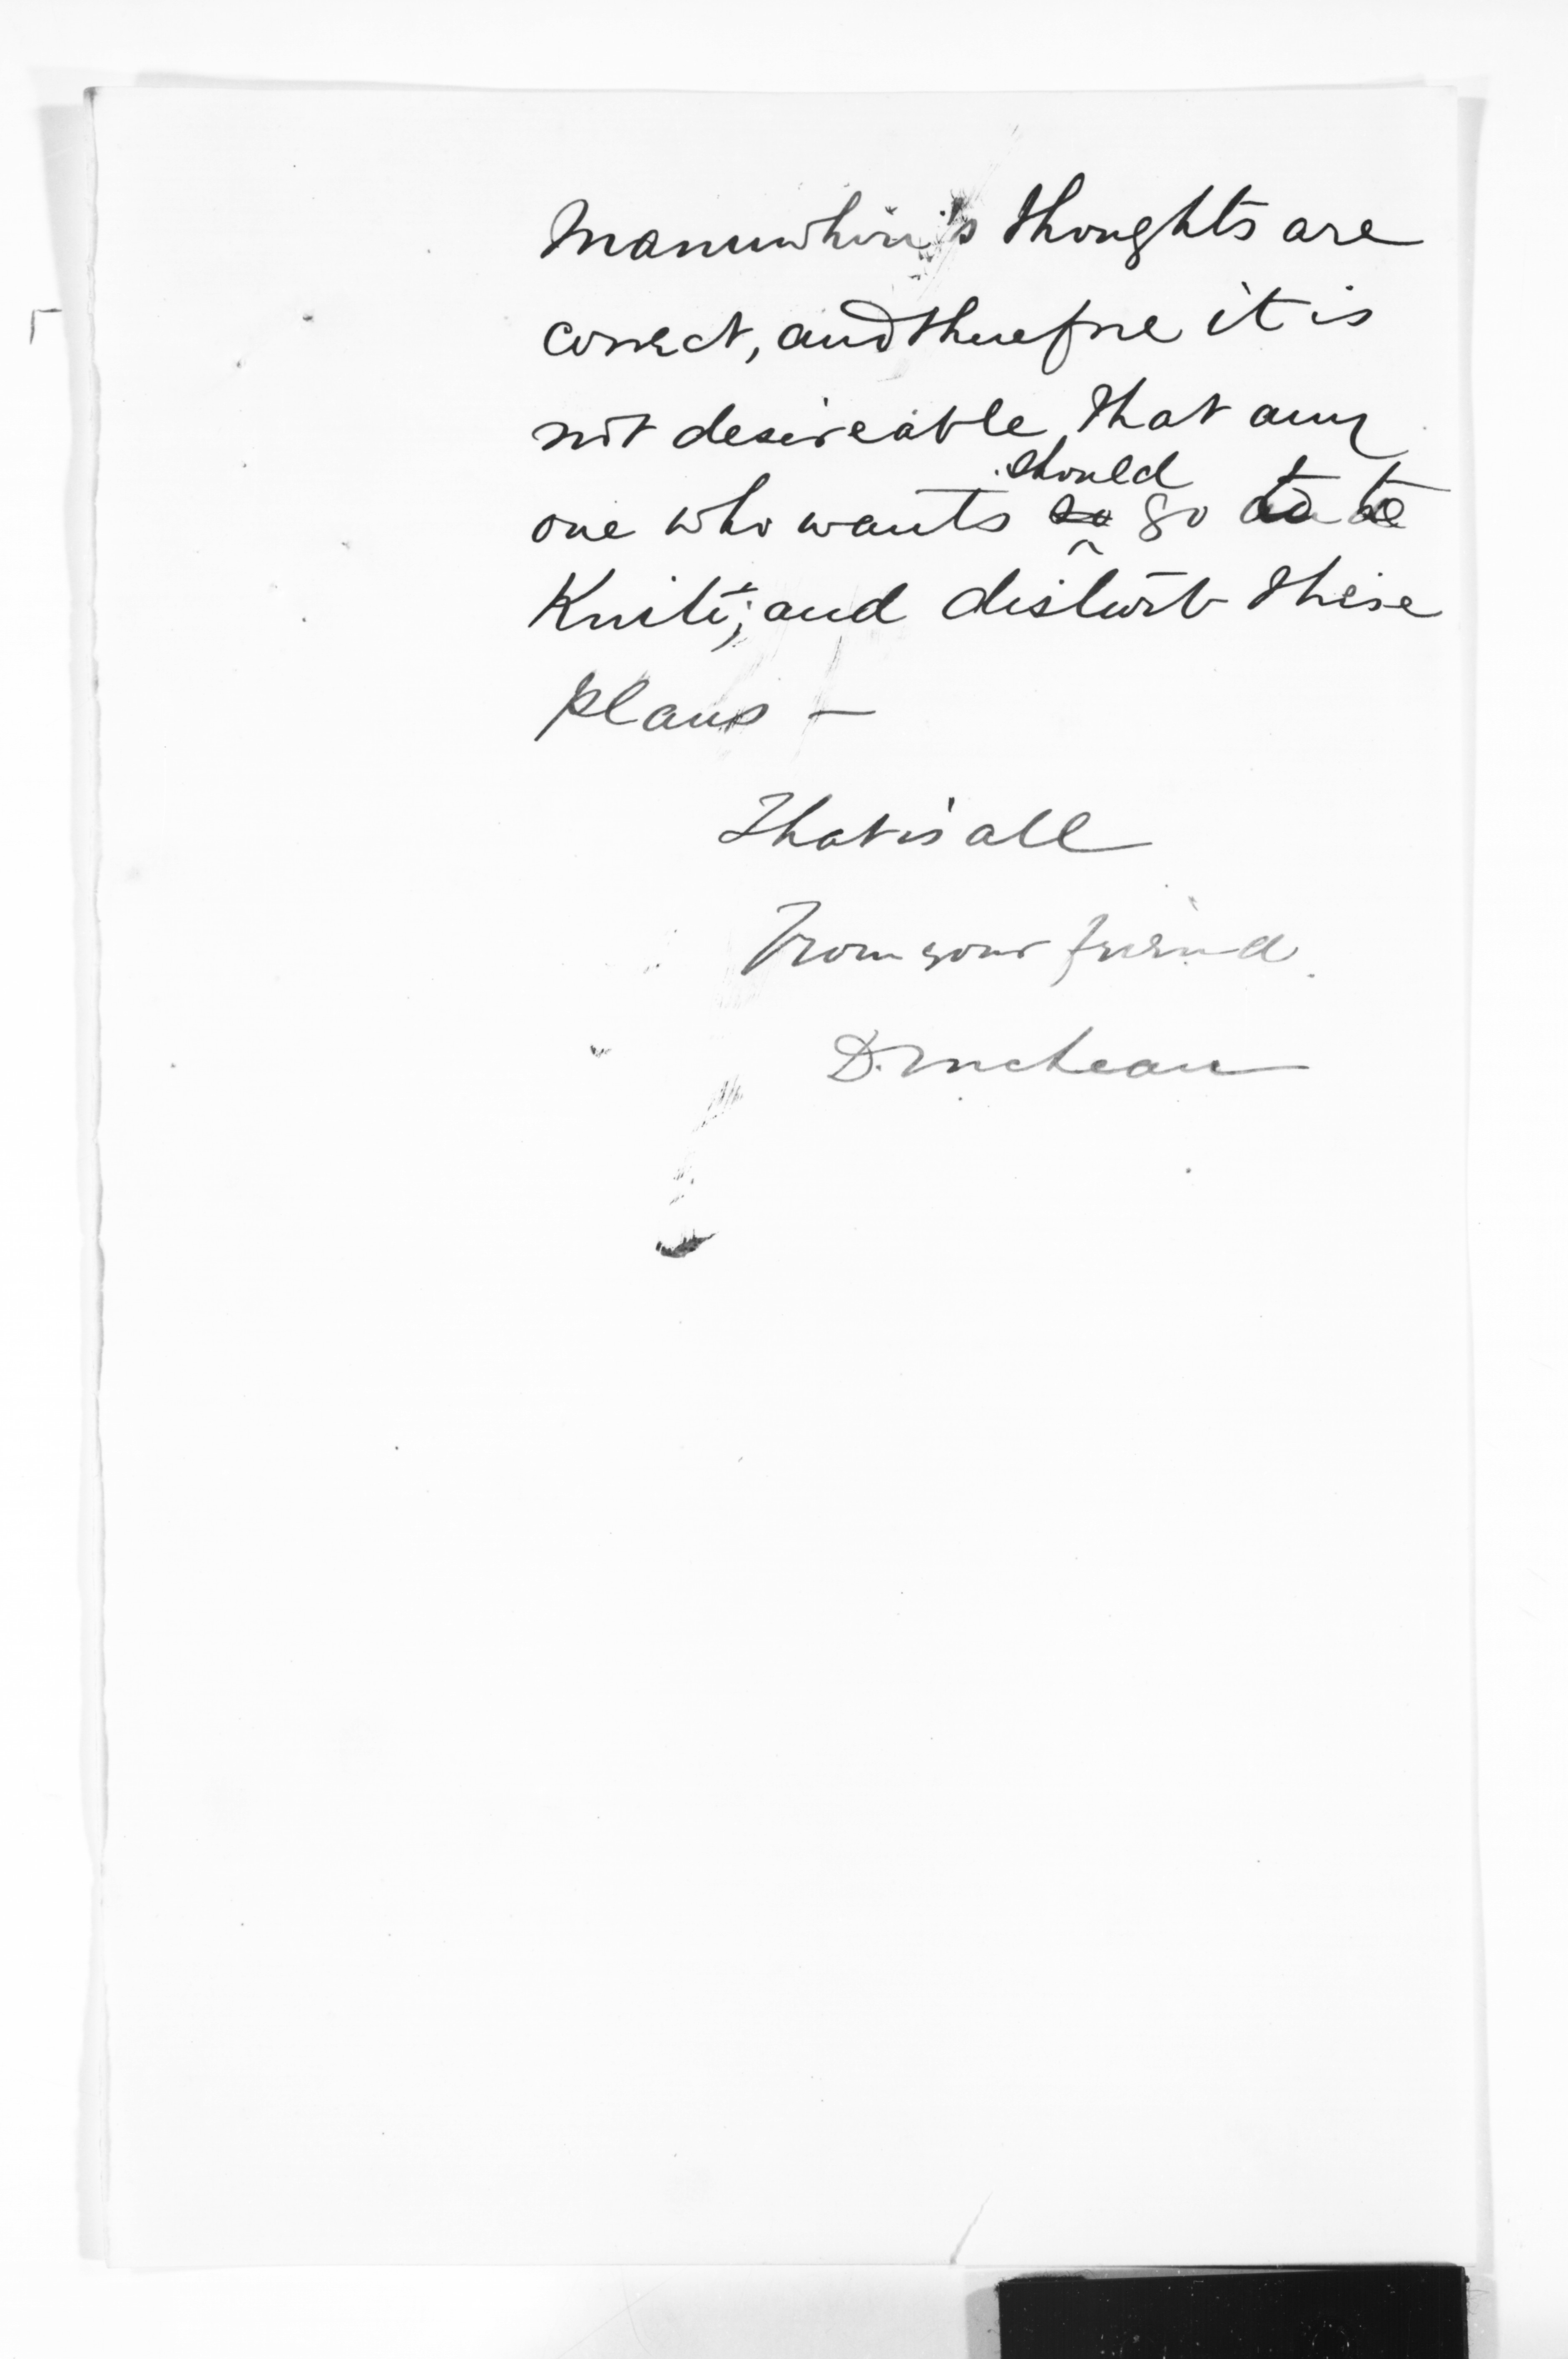 Manuwhiri's thoughts are
correct, and therefore it is
not desireable, that any
should
one who wants so go to te
Kuiti; and disturb these
plans —
That is all
From your friend.
D. McLean